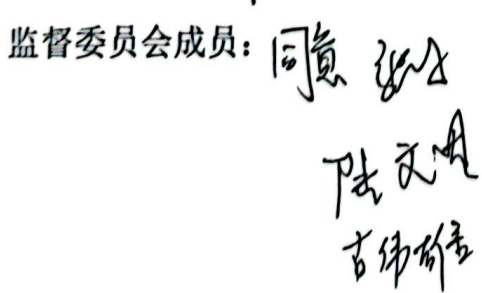 监督委员会成员：同意
陆文明
古伟